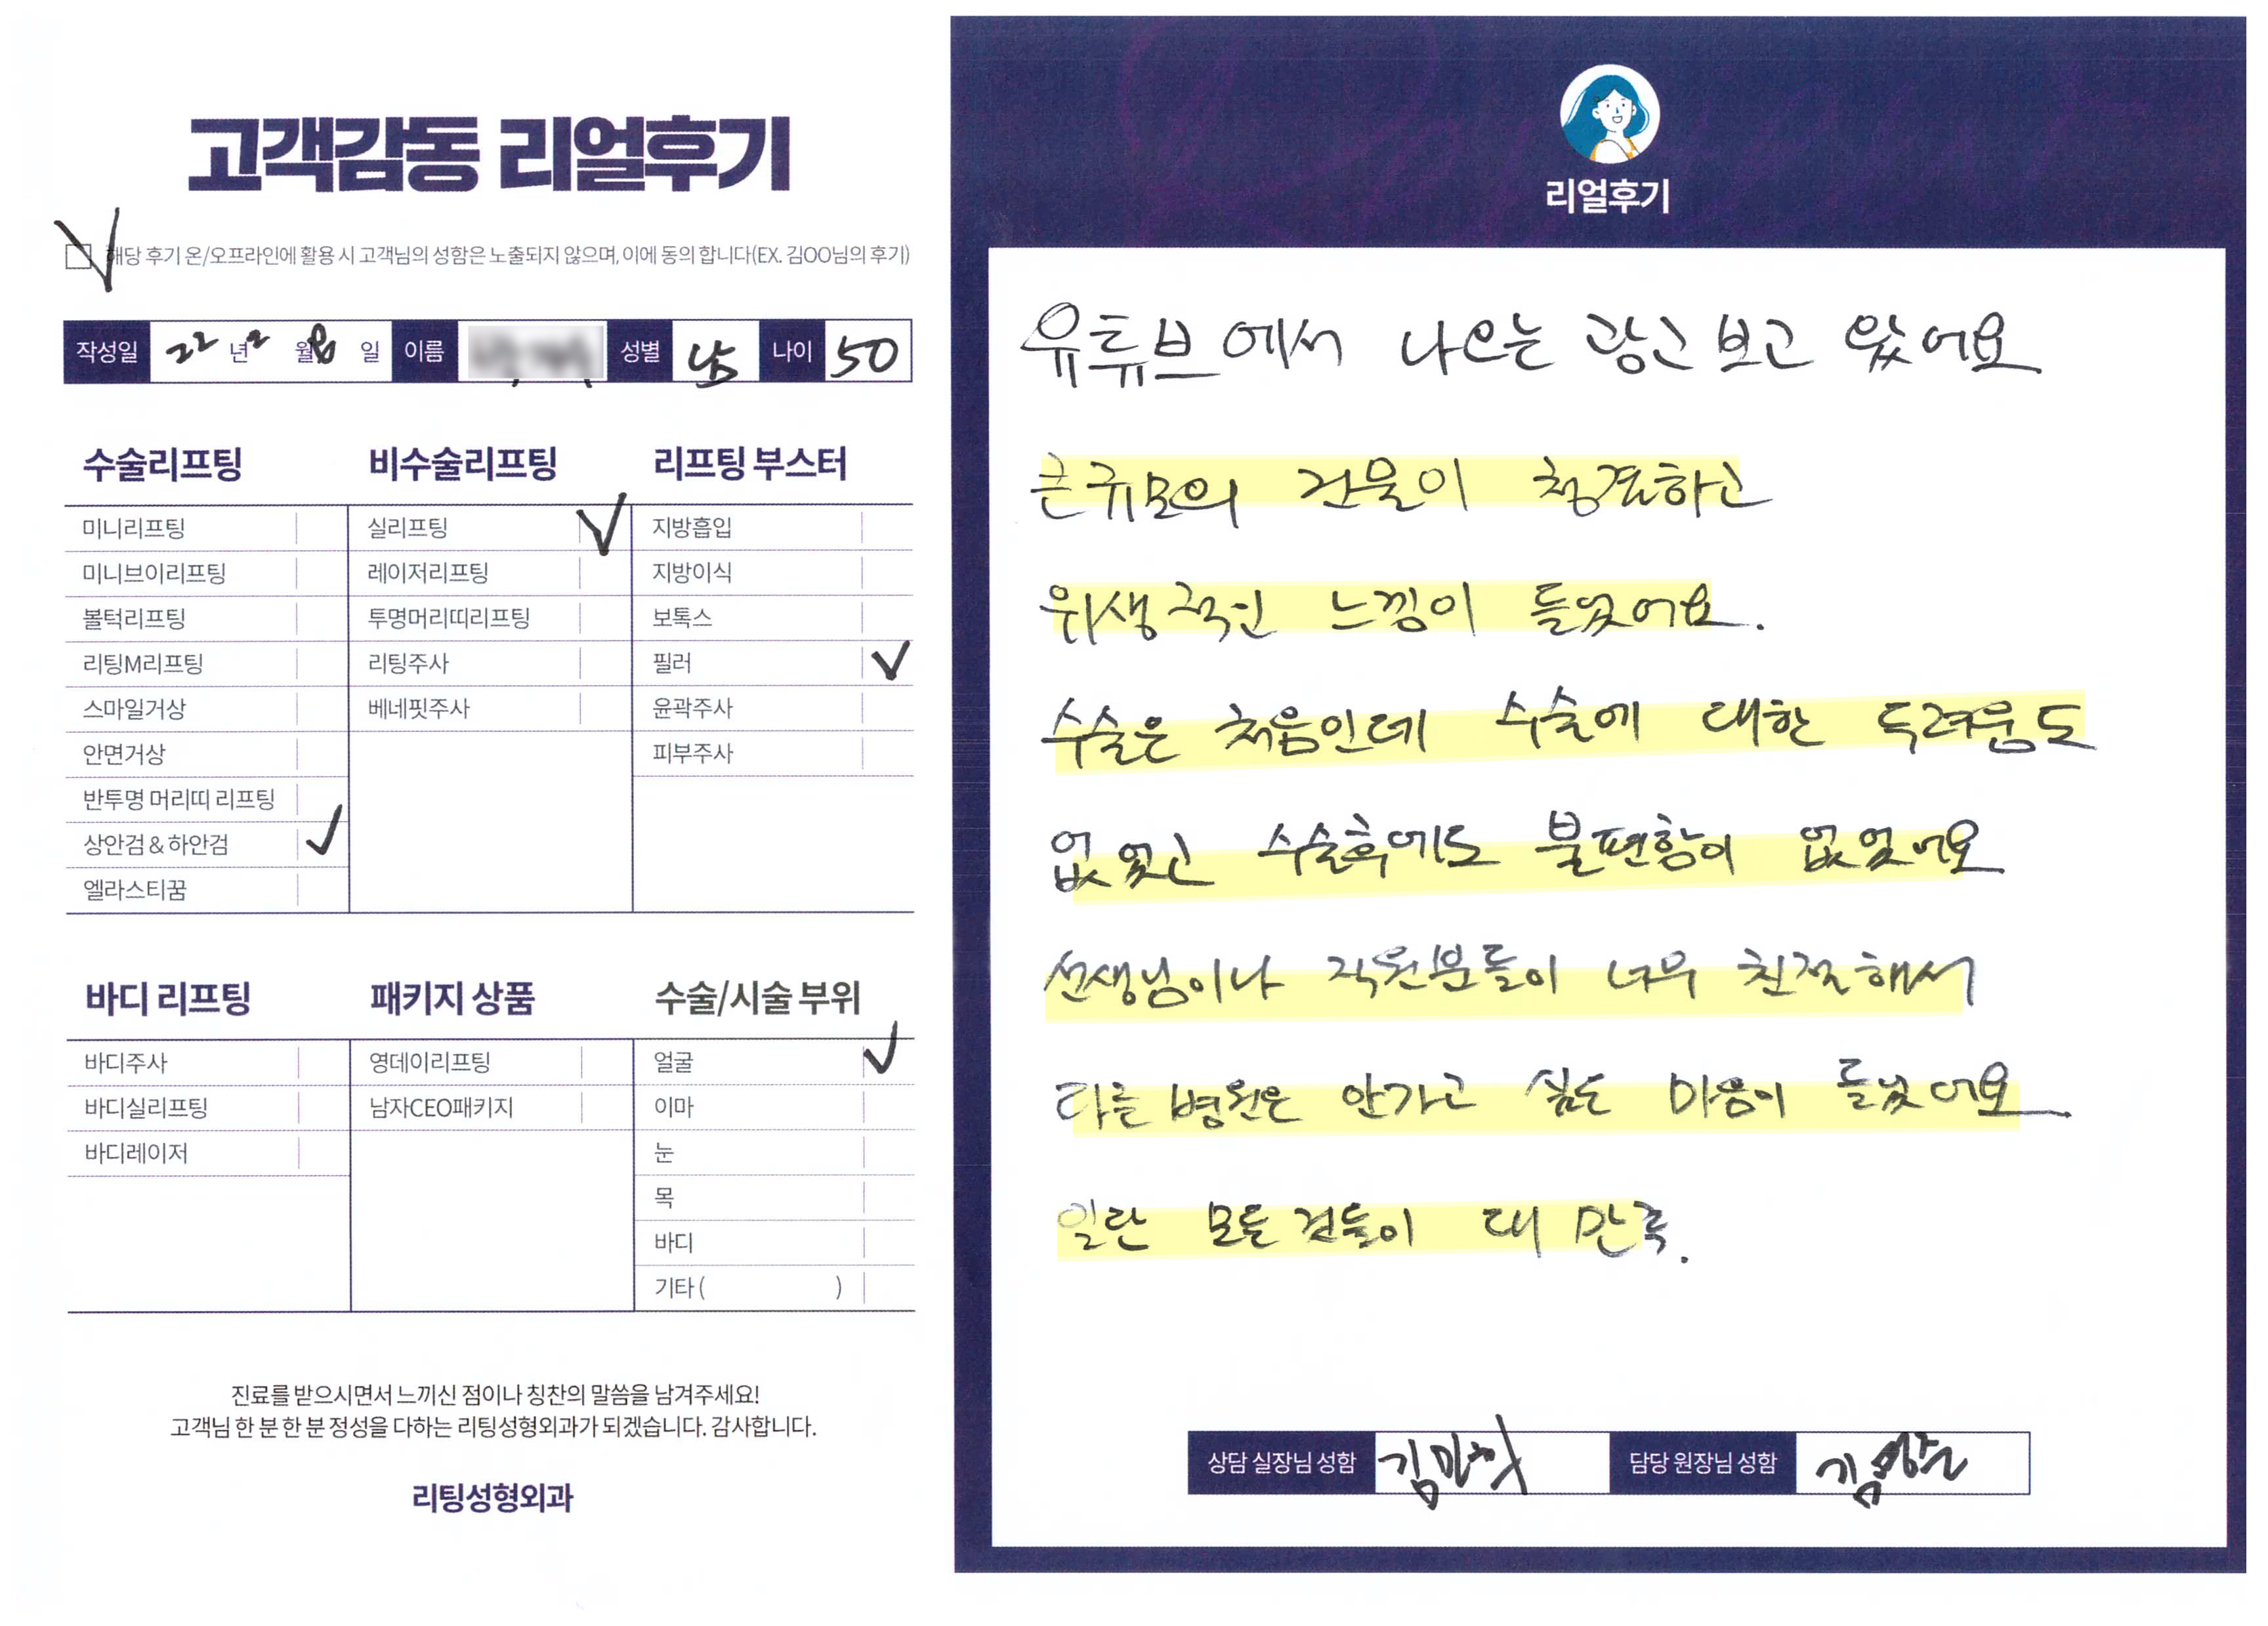 고객감동 리얼후기
해당 후기 온/오프라인에 활용 시 고객님의 성함은 노출되지 않으며, 이에 동의 합니다(EX. 김OO님의 후기)
작성일 22 년 2 월 8 일 이름 성별 남 나이 50
수술리프팅 비수술리프팅 리프팅 부스터
미니리프팅 실리프팅 지방흡입
미니브이리프팅 레이저리프팅 지방이식
볼턱리프팅 투명머리띠리프팅 보톡스
리팅M리프팅 리팅주사 필러
스마일거상 베네핏주사 윤곽주사
안면거상 피부주사
반투명 머리띠 리프팅
상안검 & 하안검
엘라스티꿈
바디 리프팅 패키지 상품 수술/시술 부위
바디주사 영데이리프팅 얼굴
바디실리프팅 남자CEO패키지 이마
바디레이저 눈
목
바디
기타 ( )
진료를 받으시면서 느끼신 점이나 칭찬의 말씀을 남겨주세요!
고객님 한 분 한 분 정성을 다하는 리팅성형외과가 되겠습니다. 감사합니다.
리팅성형외과
리얼후기
유튜브에서 나오는 광고 보고 왔어요
큰규모의 건물이 청결하고
위생적인 느낌이 들었어요.
수술은 처음인데 수술에 대한 두려움도
없었고 수술후에도 불편함이 없었어요
선생님이나 직원분들이 너무 친절해서
다른 병원은 안가고 싶은 마음이 들었어요
일단 모든것들이 대 만족.
상담 실장님 성함 담당 원장님 성함